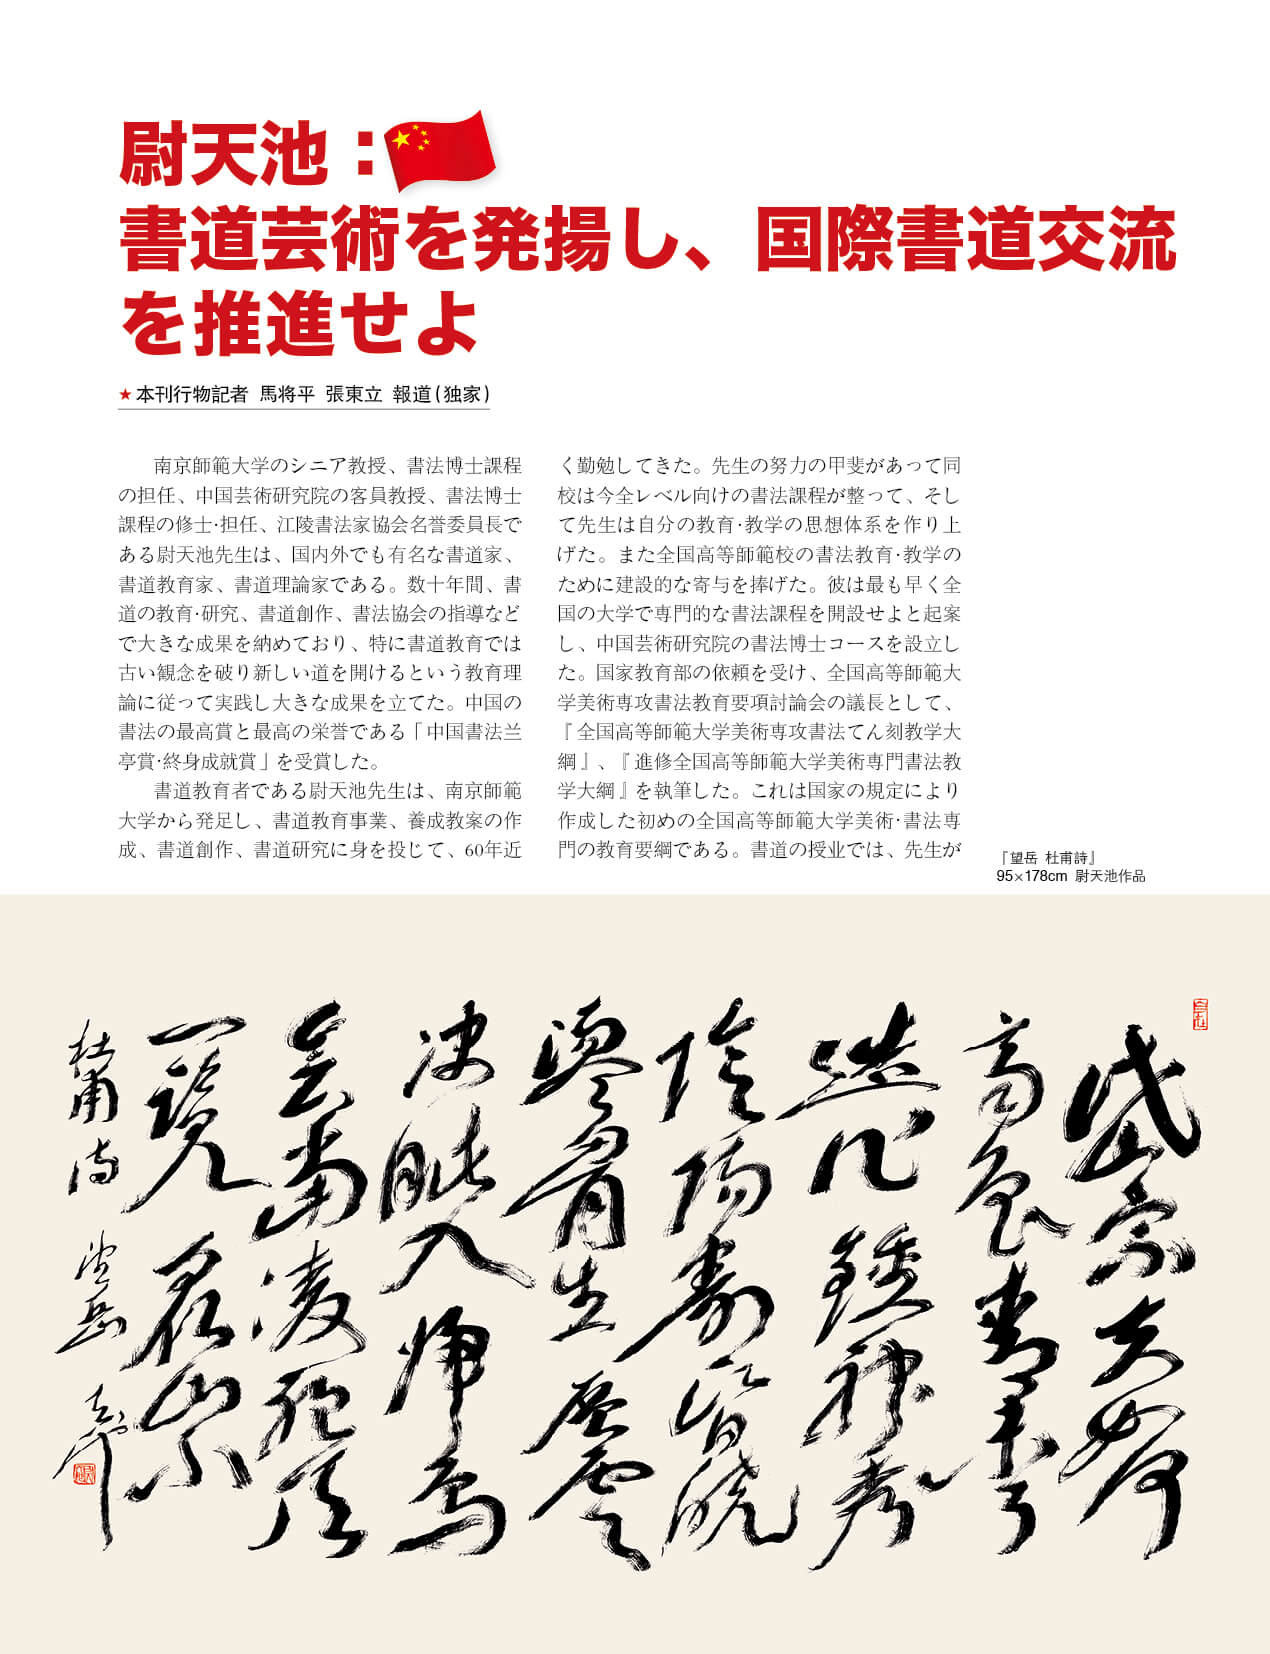 尉天池：
書道芸術を発揚し、国際書道交流
を推進せよ
★本刊行物記者 馬将平 張東立 報道(独家)
南京師範大学のシニア教授、書法博士課程
の担任、中国芸術研究院の客員教授、書法博士
課程の修士·担任、江陵書法家協会名誉委員長で
ある尉天池先生は、国内外でも有名な書道家、
書道教育家、書道理論家である。数十年間、書
道の教育·研究、書道創作、書法協会の指導など
で大きな成果を納めており、特に書道教育では
古い観念を破り新しい道を開けるという教育理
論に従って実践し大きな成果を立てた。中国の
書法の最高賞と最高の栄誉である「中国書法兰
亭賞·終身成就賞」を受賞した。
書道教育者である尉天池先生は、南京師範
大学から発足し、書道教育事業、養成教案の作
成、書道創作、書道研究に身を投じて、60年近
く勤勉してきた。先生の努力の甲斐があって同
校は今全レベル向けの書法課程が整って、そし
て先生は自分の教育·教学の思想体系を作り上
げた。また全国高等師範校の書法教育·教学の
ために建設的な寄与を捧げた。彼は最も早く全
国の大学で専門的な書法課程を開設せよと起案
し、中国芸術研究院の書法博士コースを設立し
た。国家教育部の依頼を受け、全国高等師範大
学美術専攻書法教育要項討論会の議長として、
『全国高等師範大学美術専攻書法てん刻教学大
綱』、『進修全国高等師範大学美術専門書法教
学大綱』を執筆した。これは国家の規定により
作成した初めの全国高等師範大学美術·書法専
門の教育要綱である。書道の授業では、先生が
『望岳 杜甫詩』
95×178cm 尉天池作品
岱宗夫如何
齊魯青未了
造化鍾神秀
陰陽割昏曉
盪胸生層雲
決眥入歸鳥
會當凌絕頂
一覽眾山小
杜甫詩 望岳 天池